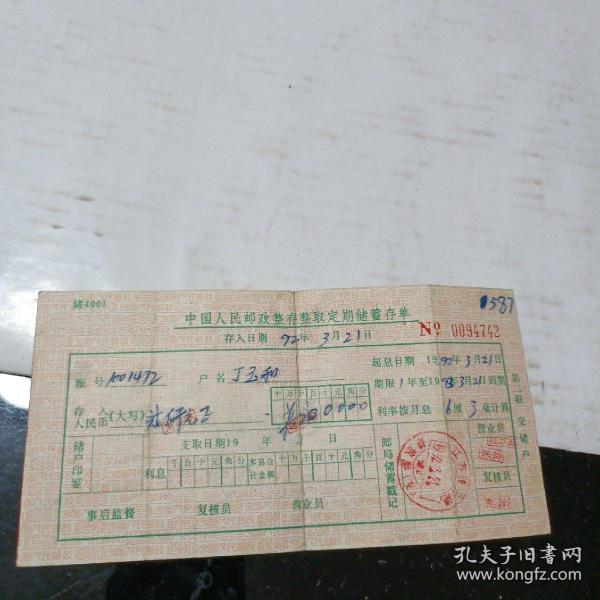 储4001
1587
中国人民邮政整存整取定期储蓄存单
存入日期 92年 3月21日
№ 0094742
起息日期 1992年3月21日
账号 1001472 户名 丁玉和
十万千百十元角分
期限1年至1993年3月21日到期
存入人民币(大写)
0000
利率按月息 6厘3毫计算
储户印鉴
支取日期19 年 月 日
利息
千百十元角分
本息合计金额
十万千百十元角分
邮局储蓄戳记
营业员
复核员
事后监督 复核员 营业员
第一联交储户
孔夫子旧书网
www.kongfz.com